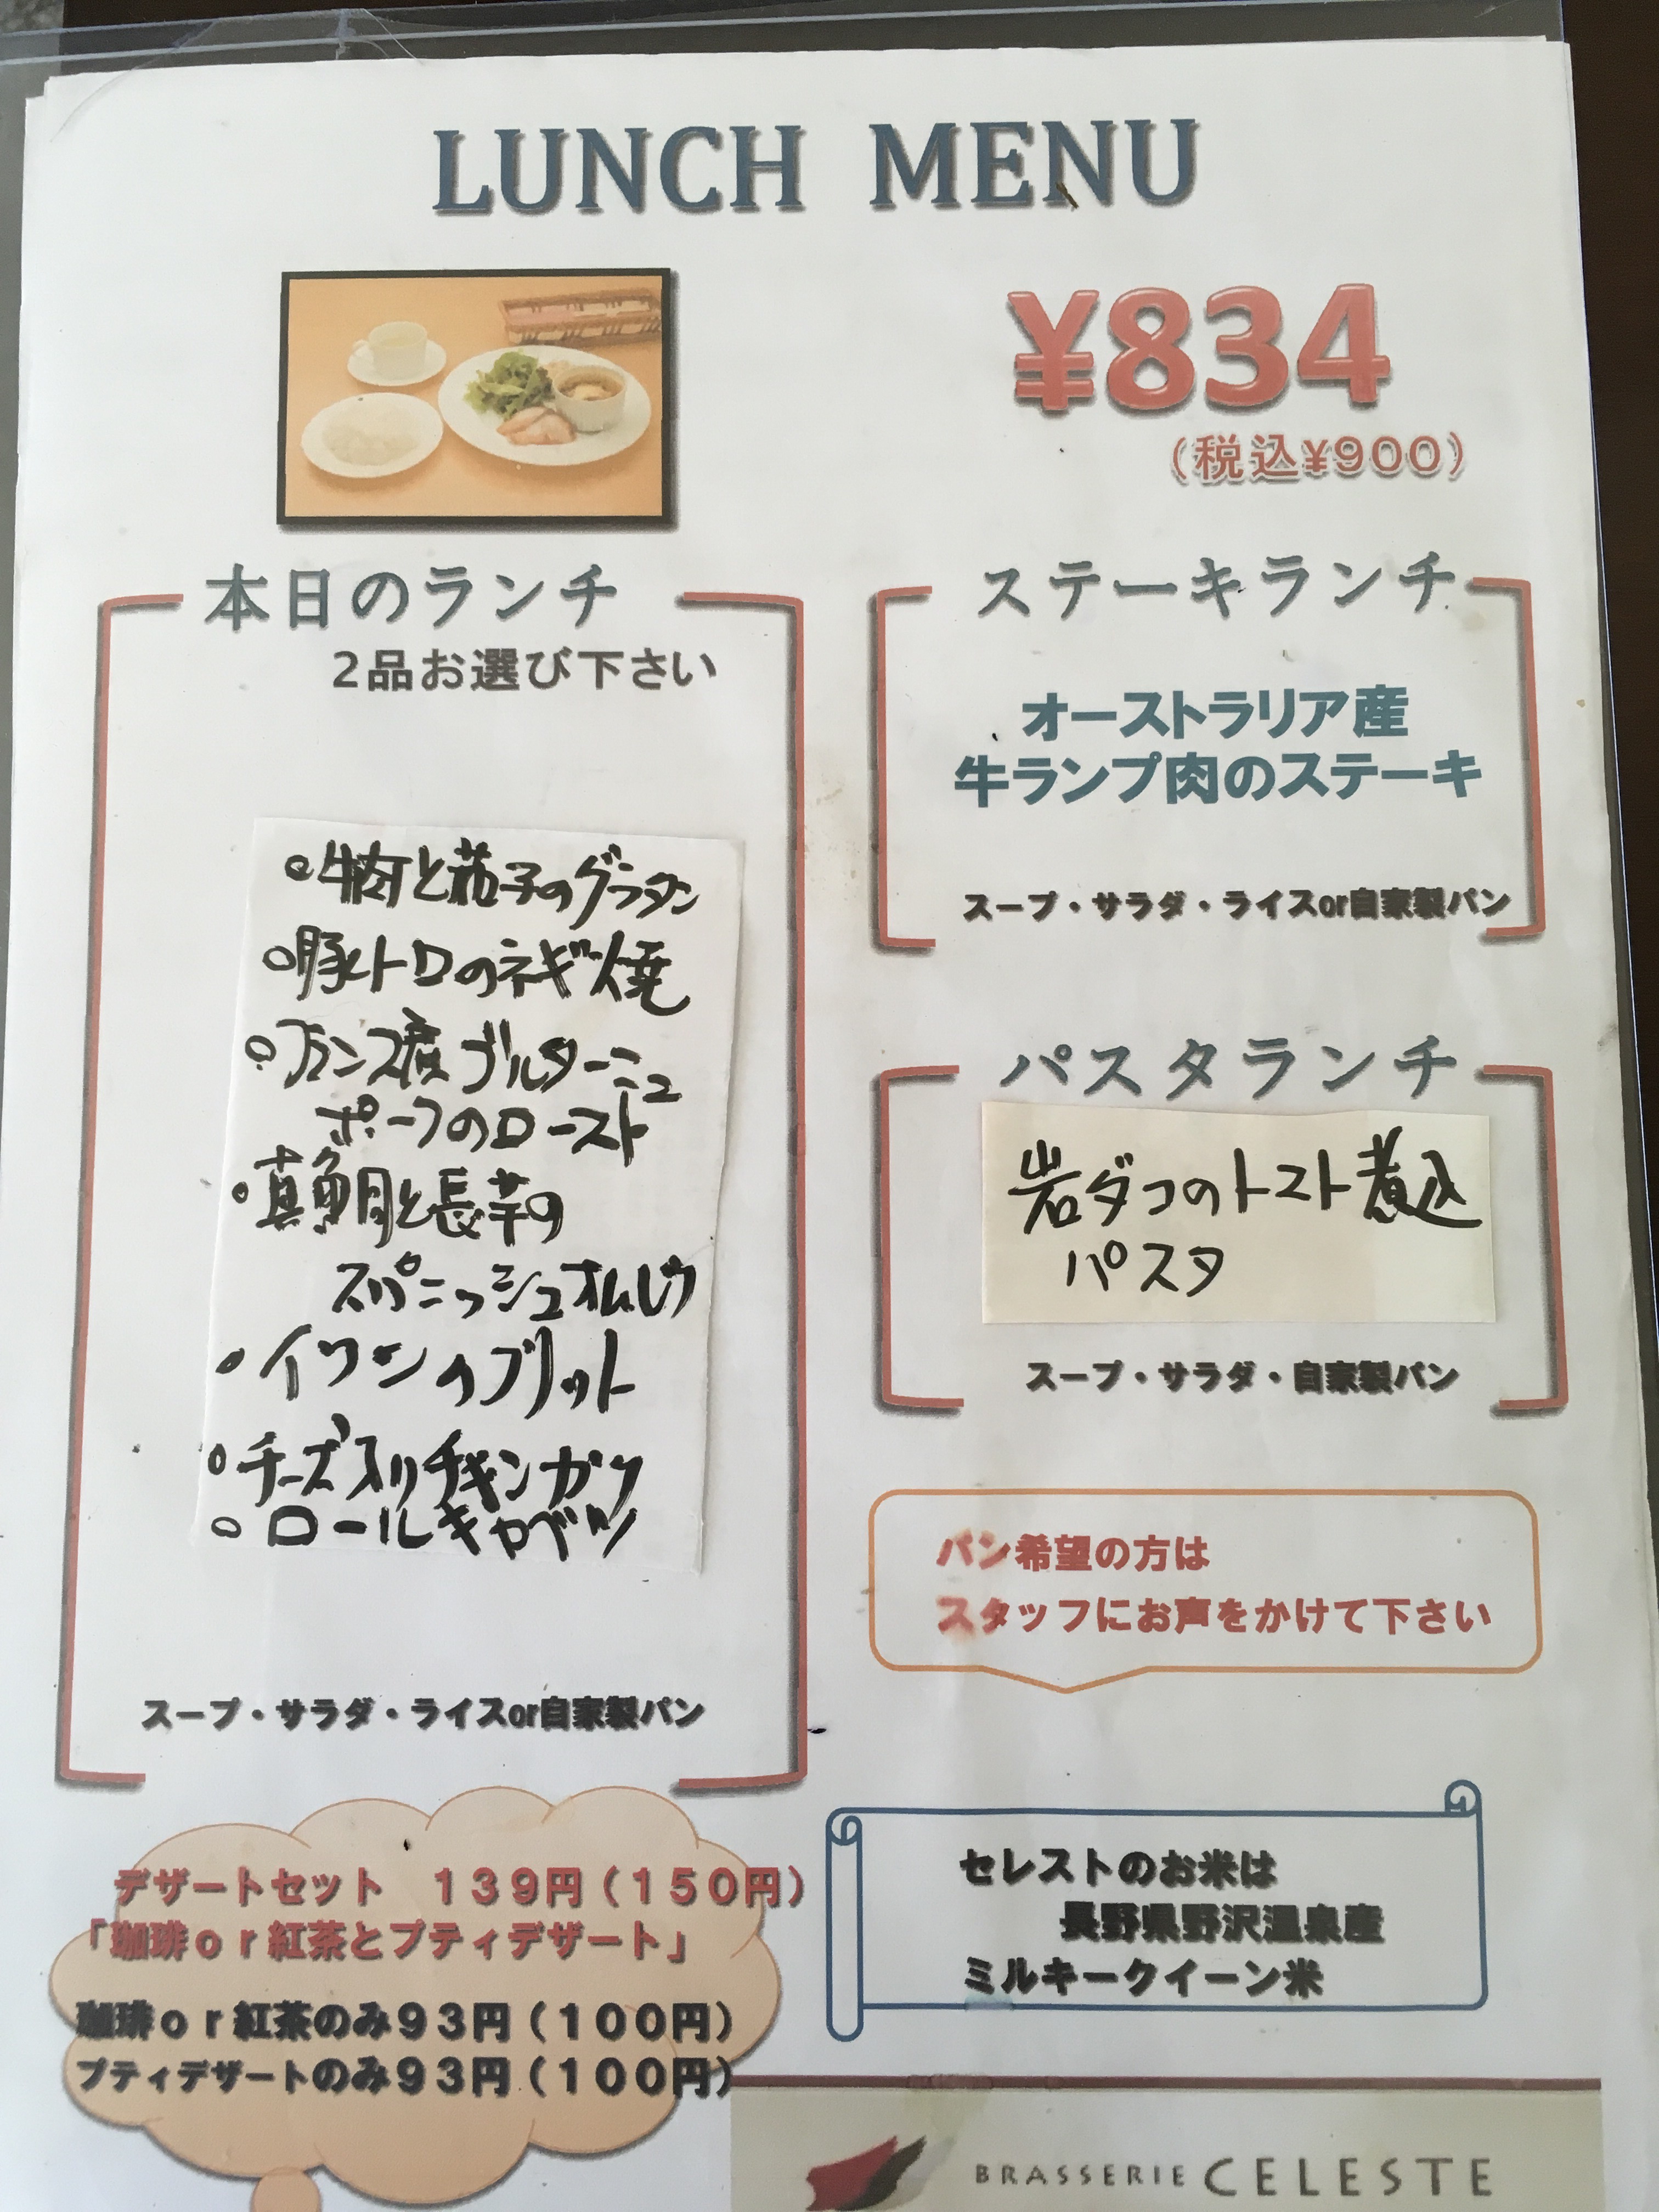 LUNCH MENU
¥834
（税込¥900）
本日のランチ
２品お選び下さい
○牛肉と茄子のグラタン
○豚トロのネギ焼
○フランス産ブルターニュ
ポークのロースト
○真鯛と長芋の
スパニッシュオムレツ
・イワシのフリット
○チーズ入りチキンカツ
○ロールキャベツ
スープ・サラダ・ライスor自家製パン
ステーキランチ
オーストラリア産
牛ランプ肉のステーキ
スープ・サラダ・ライスor自家製パン
パスタランチ
岩ダコのトマト煮込
パスタ
スープ・サラダ・自家製パン
パン希望の方は
スタッフにお声をかけて下さい
デザートセット　１３９円（１５０円）
「珈琲ｏｒ紅茶とプティデザート」
珈琲ｏｒ紅茶のみ９３円（１００円）
プティデザートのみ９３円（１００円）
セレストのお米は
長野県野沢温泉産
ミルキークイーン米
BRASSERIE CELESTE